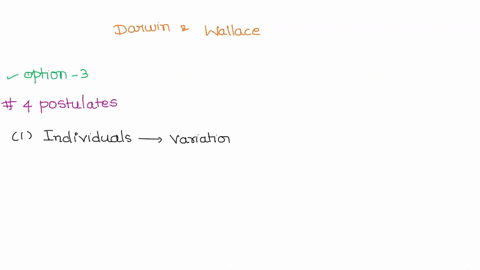 Darwin & Wallace
✓ option-3
# 4 postulates
(1) Individuals → variation